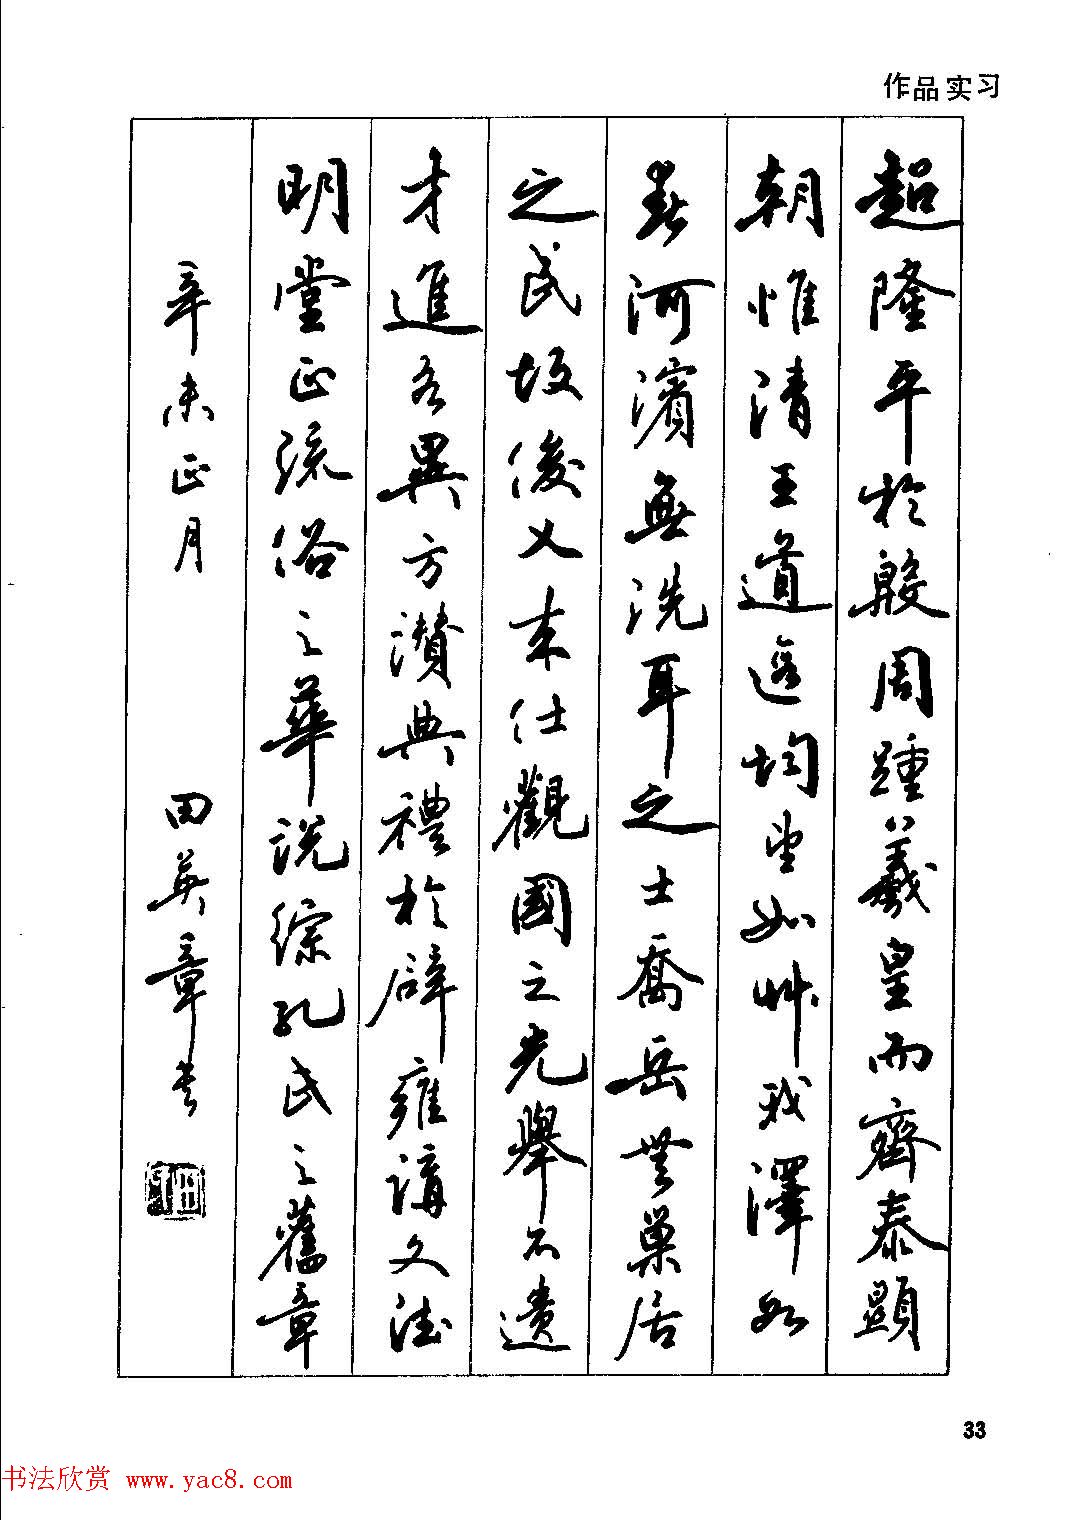 作品实习
超隆平於殷周踵羲皇而齊泰顯
朝惟清王道遐均望如艸我澤如
春河濱無洗耳之士喬岳無巢居
之民俊乂来仕觀國之光舉不遺
才進各異方讃典禮於辟雍講文德
明堂正流俗之華說綜孔氏之舊章
辛未正月 田英章书
33
书法欣赏 www.yac8.com